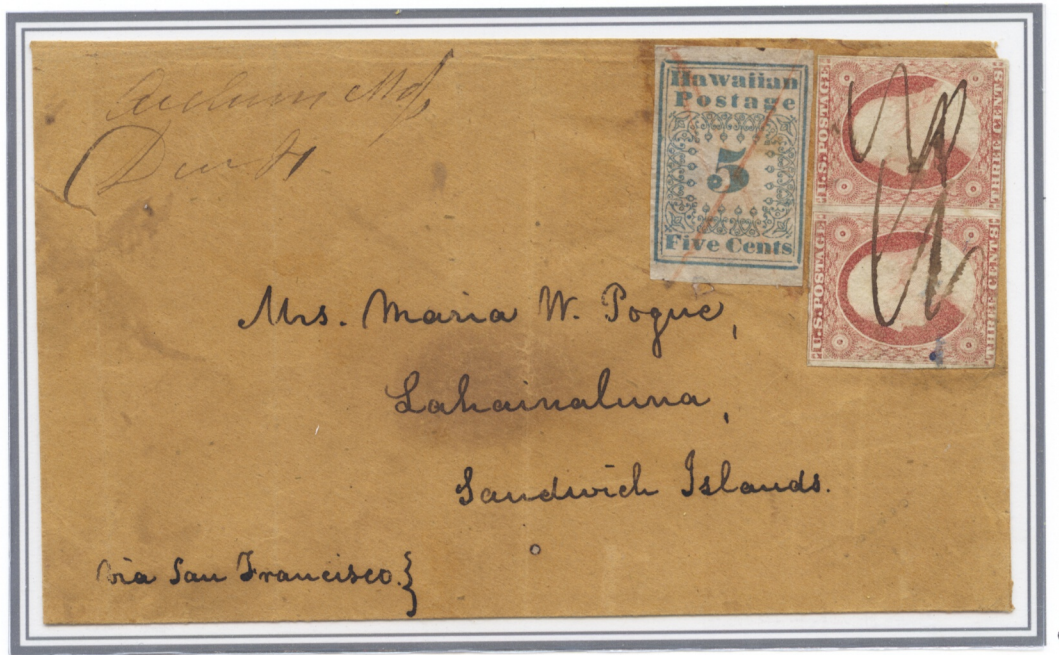 Hawaiian
Postage
5
Five Cents
U.S. POSTAGE
THREE CENTS
U.S. POSTAGE
THREE CENTS
Mrs. Maria W. Pogue,
Lahainaluna,
Sandwich Islands.
via San Francisco.}